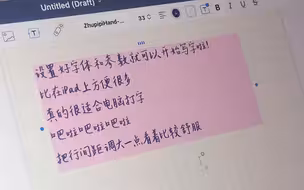 Untitled (Draft)
ZhupipiHand-... 33 B I U S
设置好字体和参数就可以开始写字啦!
比在iPad上方便很多
真的很适合电脑打字
吧啦吧啦吧啦
把行间距调大一点看着比较舒服